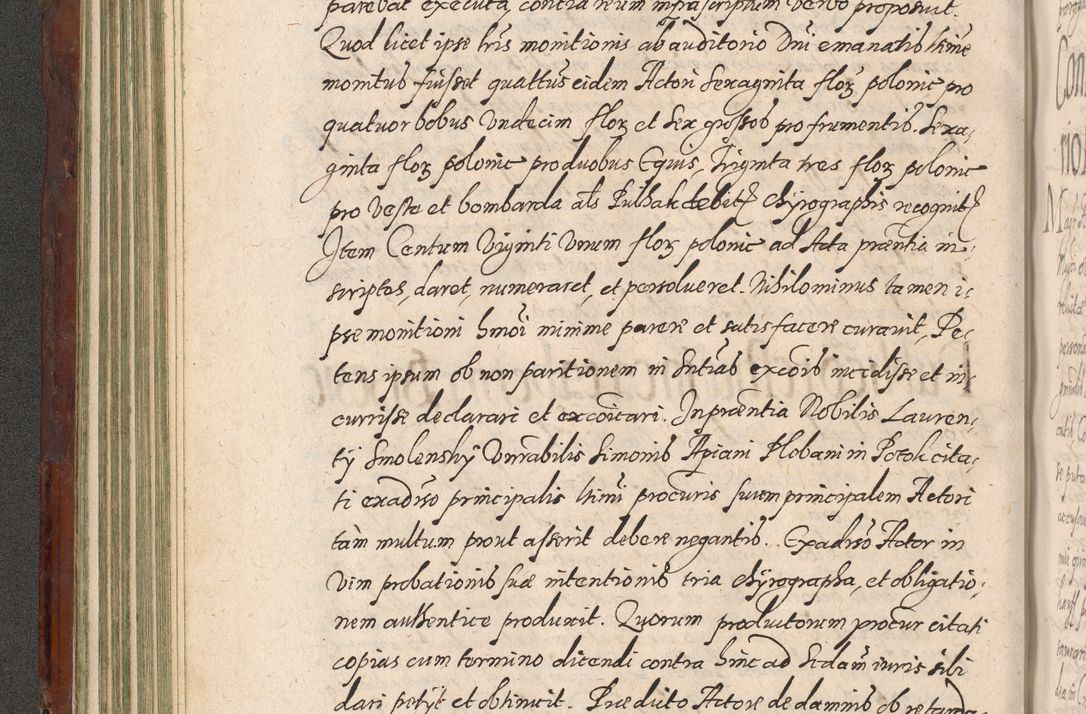 parebat executa contra reum infrascriptum verbo proposuit.
Quod licet ipse lrīs monitionis ab auditorio Dni emanatis ltime
monitus fuisset quattūs eidem Actori Sexaginta floꝝ polonic pro
quatuor bobus Vndecim floꝝ et Sex grossos pro frumentis. Sexa,
ginta floꝝ polonic pro duobus Equis, Triginta tres floꝝ polonic
pro Veste et bombarda als Pulhak debit chyrographis recognit
Item Centum Viginti Vnum floꝝ polonic ad Acta præntia in,
scriptos, daret, numeraret, et persolueret. Nihilominus tamen i,
pse monitioni hmōi minime parere et satisfacere curauit, Pe,
tens ipsum ob non paritionem in Sntias excōis incidisse et in,
currisse declarari et excōicari. In præntia Nobilis Lauren,
ty Smolensky Vnrabilis Simonis Apiani Plebani in Potok cita,
ti ex aduso principalis ltimi procuris suum principalem Actori
tām multum prout asserit debere negantis. Ex aduso Actor in
vim probationis suæ intentionis tria chyrographa, et obligatio,
nem authentice produxit. Quorum productorum procur citati
copias cum termino dicendi contra hinc ad Sedam iuris sibi
dari petyt et obtinuit. Præducto Actore de damnis ob retarda,
Con
rio
M